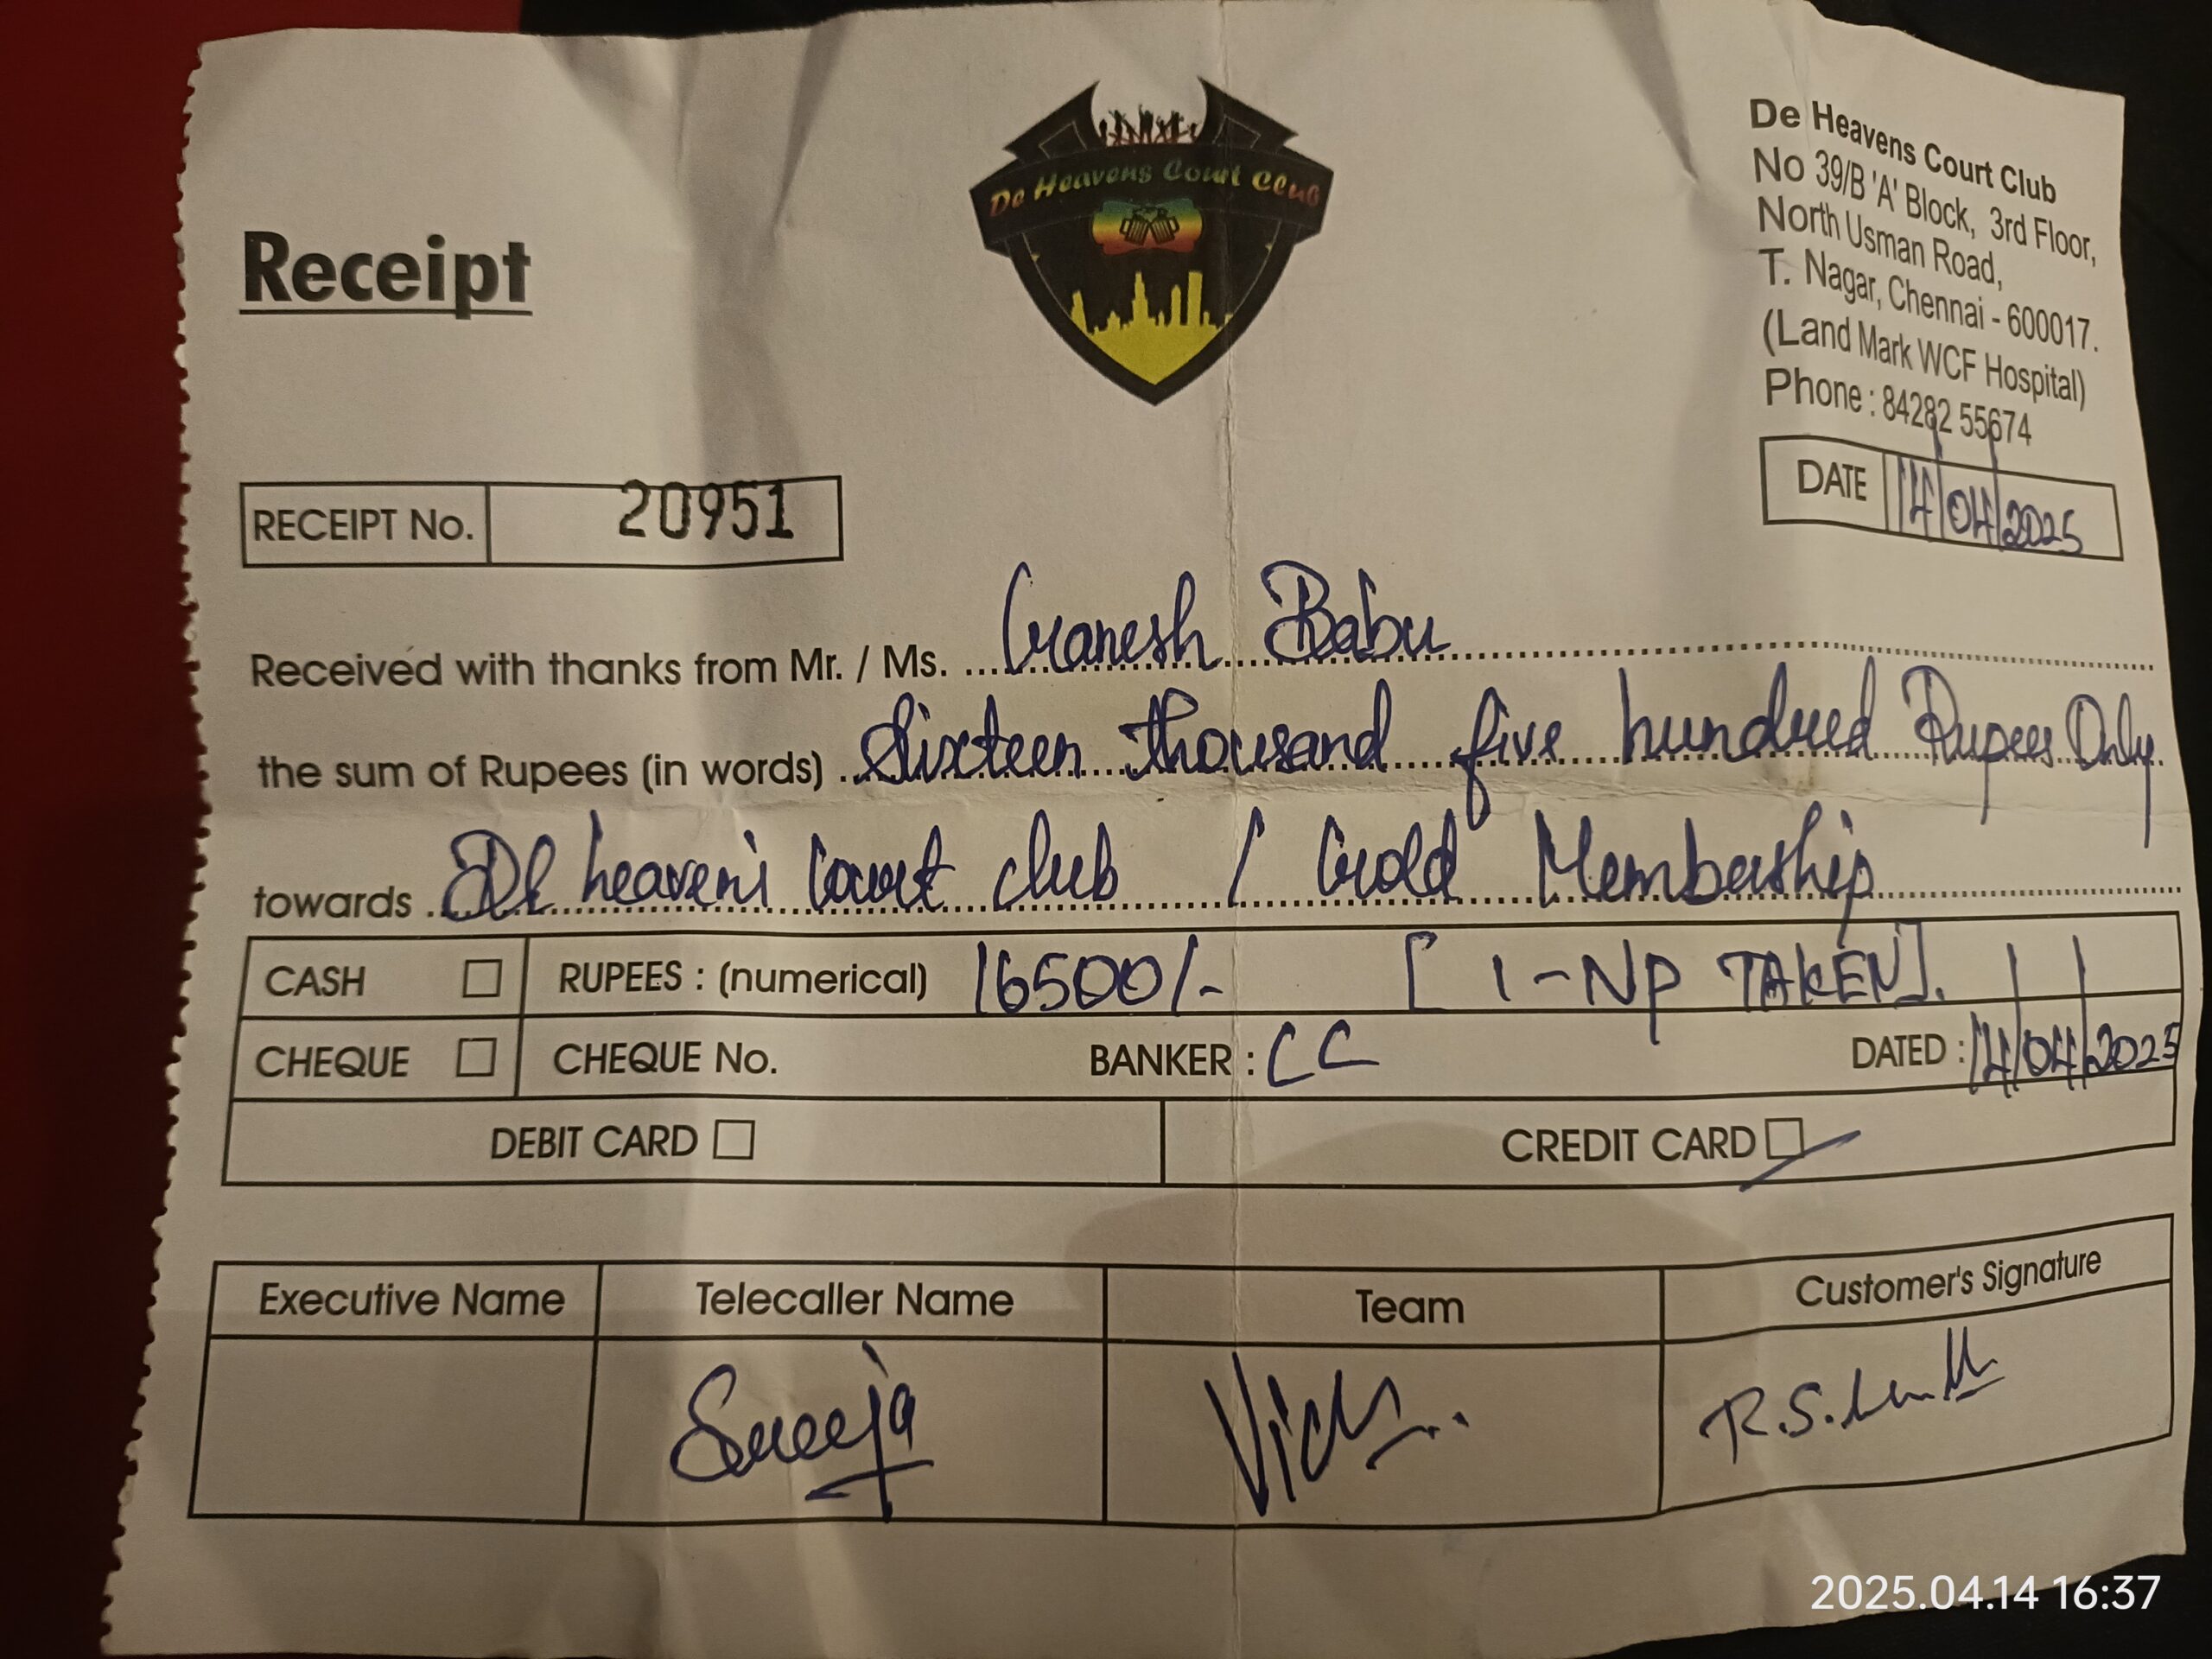 De Heavens Court Club
Receipt
De Heavens Court Club
No 39/B 'A' Block, 3rd Floor,
North Usman Road,
T. Nagar, Chennai - 600017.
(Land Mark WCF Hospital)
Phone : 84282 55674
DATE 14/04/2025
RECEIPT No. 20951
Received with thanks from Mr. / Ms. Ganesh Babu
the sum of Rupees (in words) Sixteen thousand five hundred Rupees Only
towards De heaven's court club / Gold Membership
CASH RUPEES : (numerical) 16500/- [ 1-NP TAKEN].
CHEQUE CHEQUE No. BANKER : CC DATED : 14/04/2025
DEBIT CARD CREDIT CARD
Executive Name Telecaller Name Team Customer's Signature
R.S.
2025.04.14 16:37